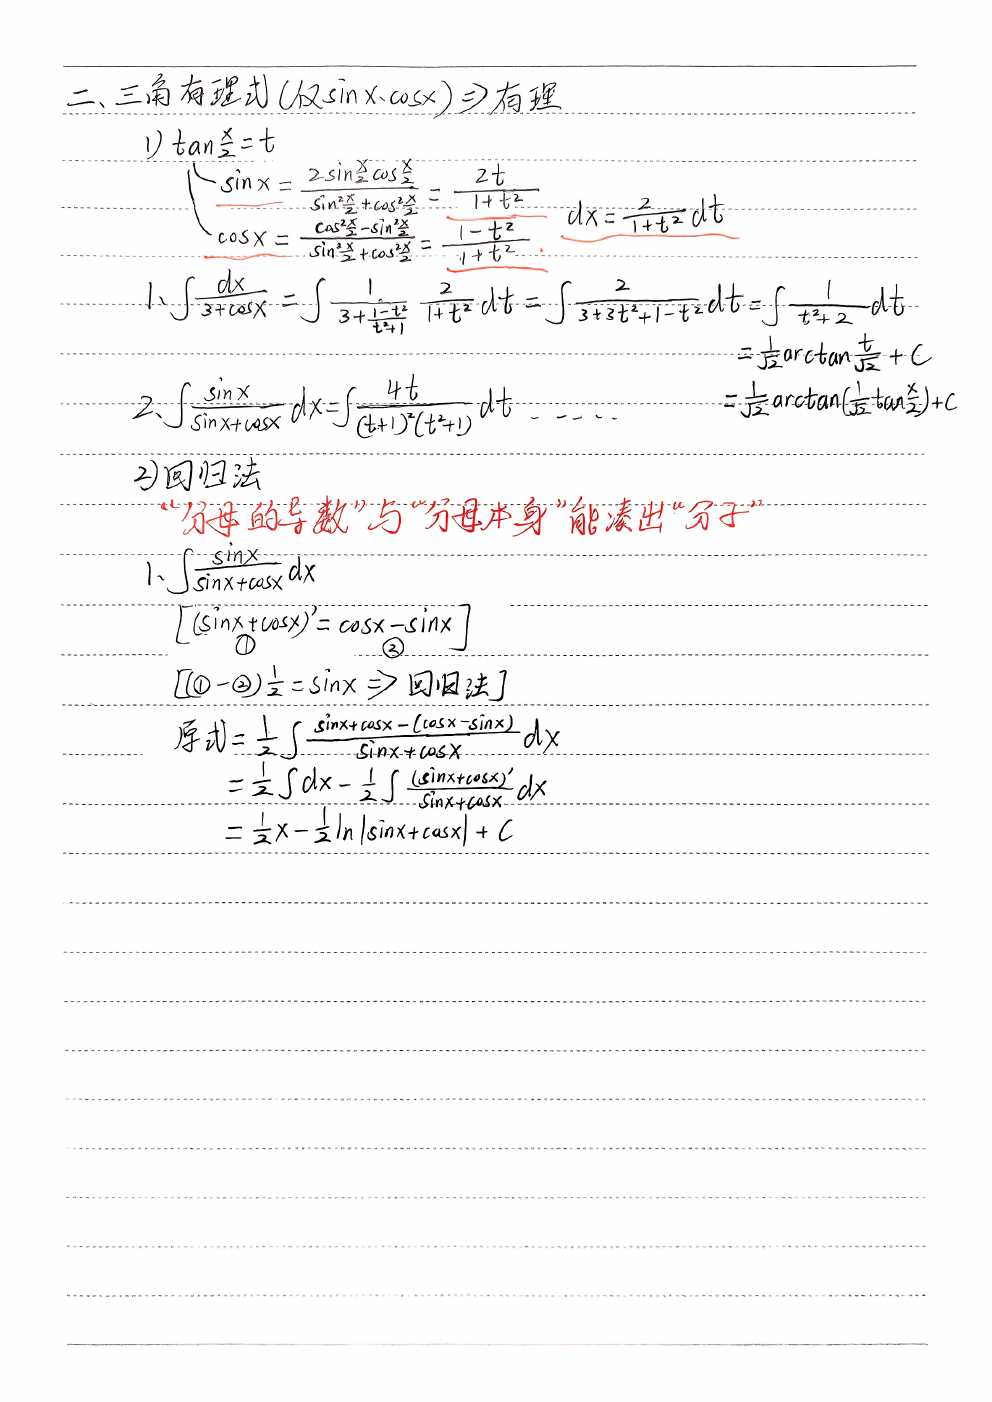 二、三角有理式(仅sinx、cosx)⇒有理
1) tan x/2 = t
sinx = (2sin x/2 cos x/2)/(sin² x/2 + cos² x/2) = 2t/(1+t²)
dx = 2/(1+t²) dt
cosx = (cos² x/2 - sin² x/2)/(sin² x/2 + cos² x/2) = (1-t²)/(1+t²)
1、∫ dx/(3+cosx) = ∫ 1/(3+(1-t²)/(t²+1)) 2/(1+t²) dt = ∫ 2/(3+3t²+1-t²) dt = ∫ 1/(t²+2) dt
= 1/√2 arctan t/√2 + C
= 1/√2 arctan(1/√2 tan x/2)+C
2、∫ sinx/(sinx+cosx) dx = ∫ 4t/((t+1)²(t²+1)) dt -----
2)回归法
"分母的导数"与"分母本身"能凑出"分子"
1、∫ sinx/(sinx+cosx) dx
[(sinx+cosx)' = cosx-sinx]
① ②
[(①-②)1/2 = sinx ⇒ 回归法]
原式 = 1/2 ∫ (sinx+cosx-(cosx-sinx))/(sinx+cosx) dx
= 1/2 ∫dx - 1/2 ∫ (sinx+cosx)'/(sinx+cosx) dx
= 1/2 x - 1/2 ln|sinx+cosx| + C